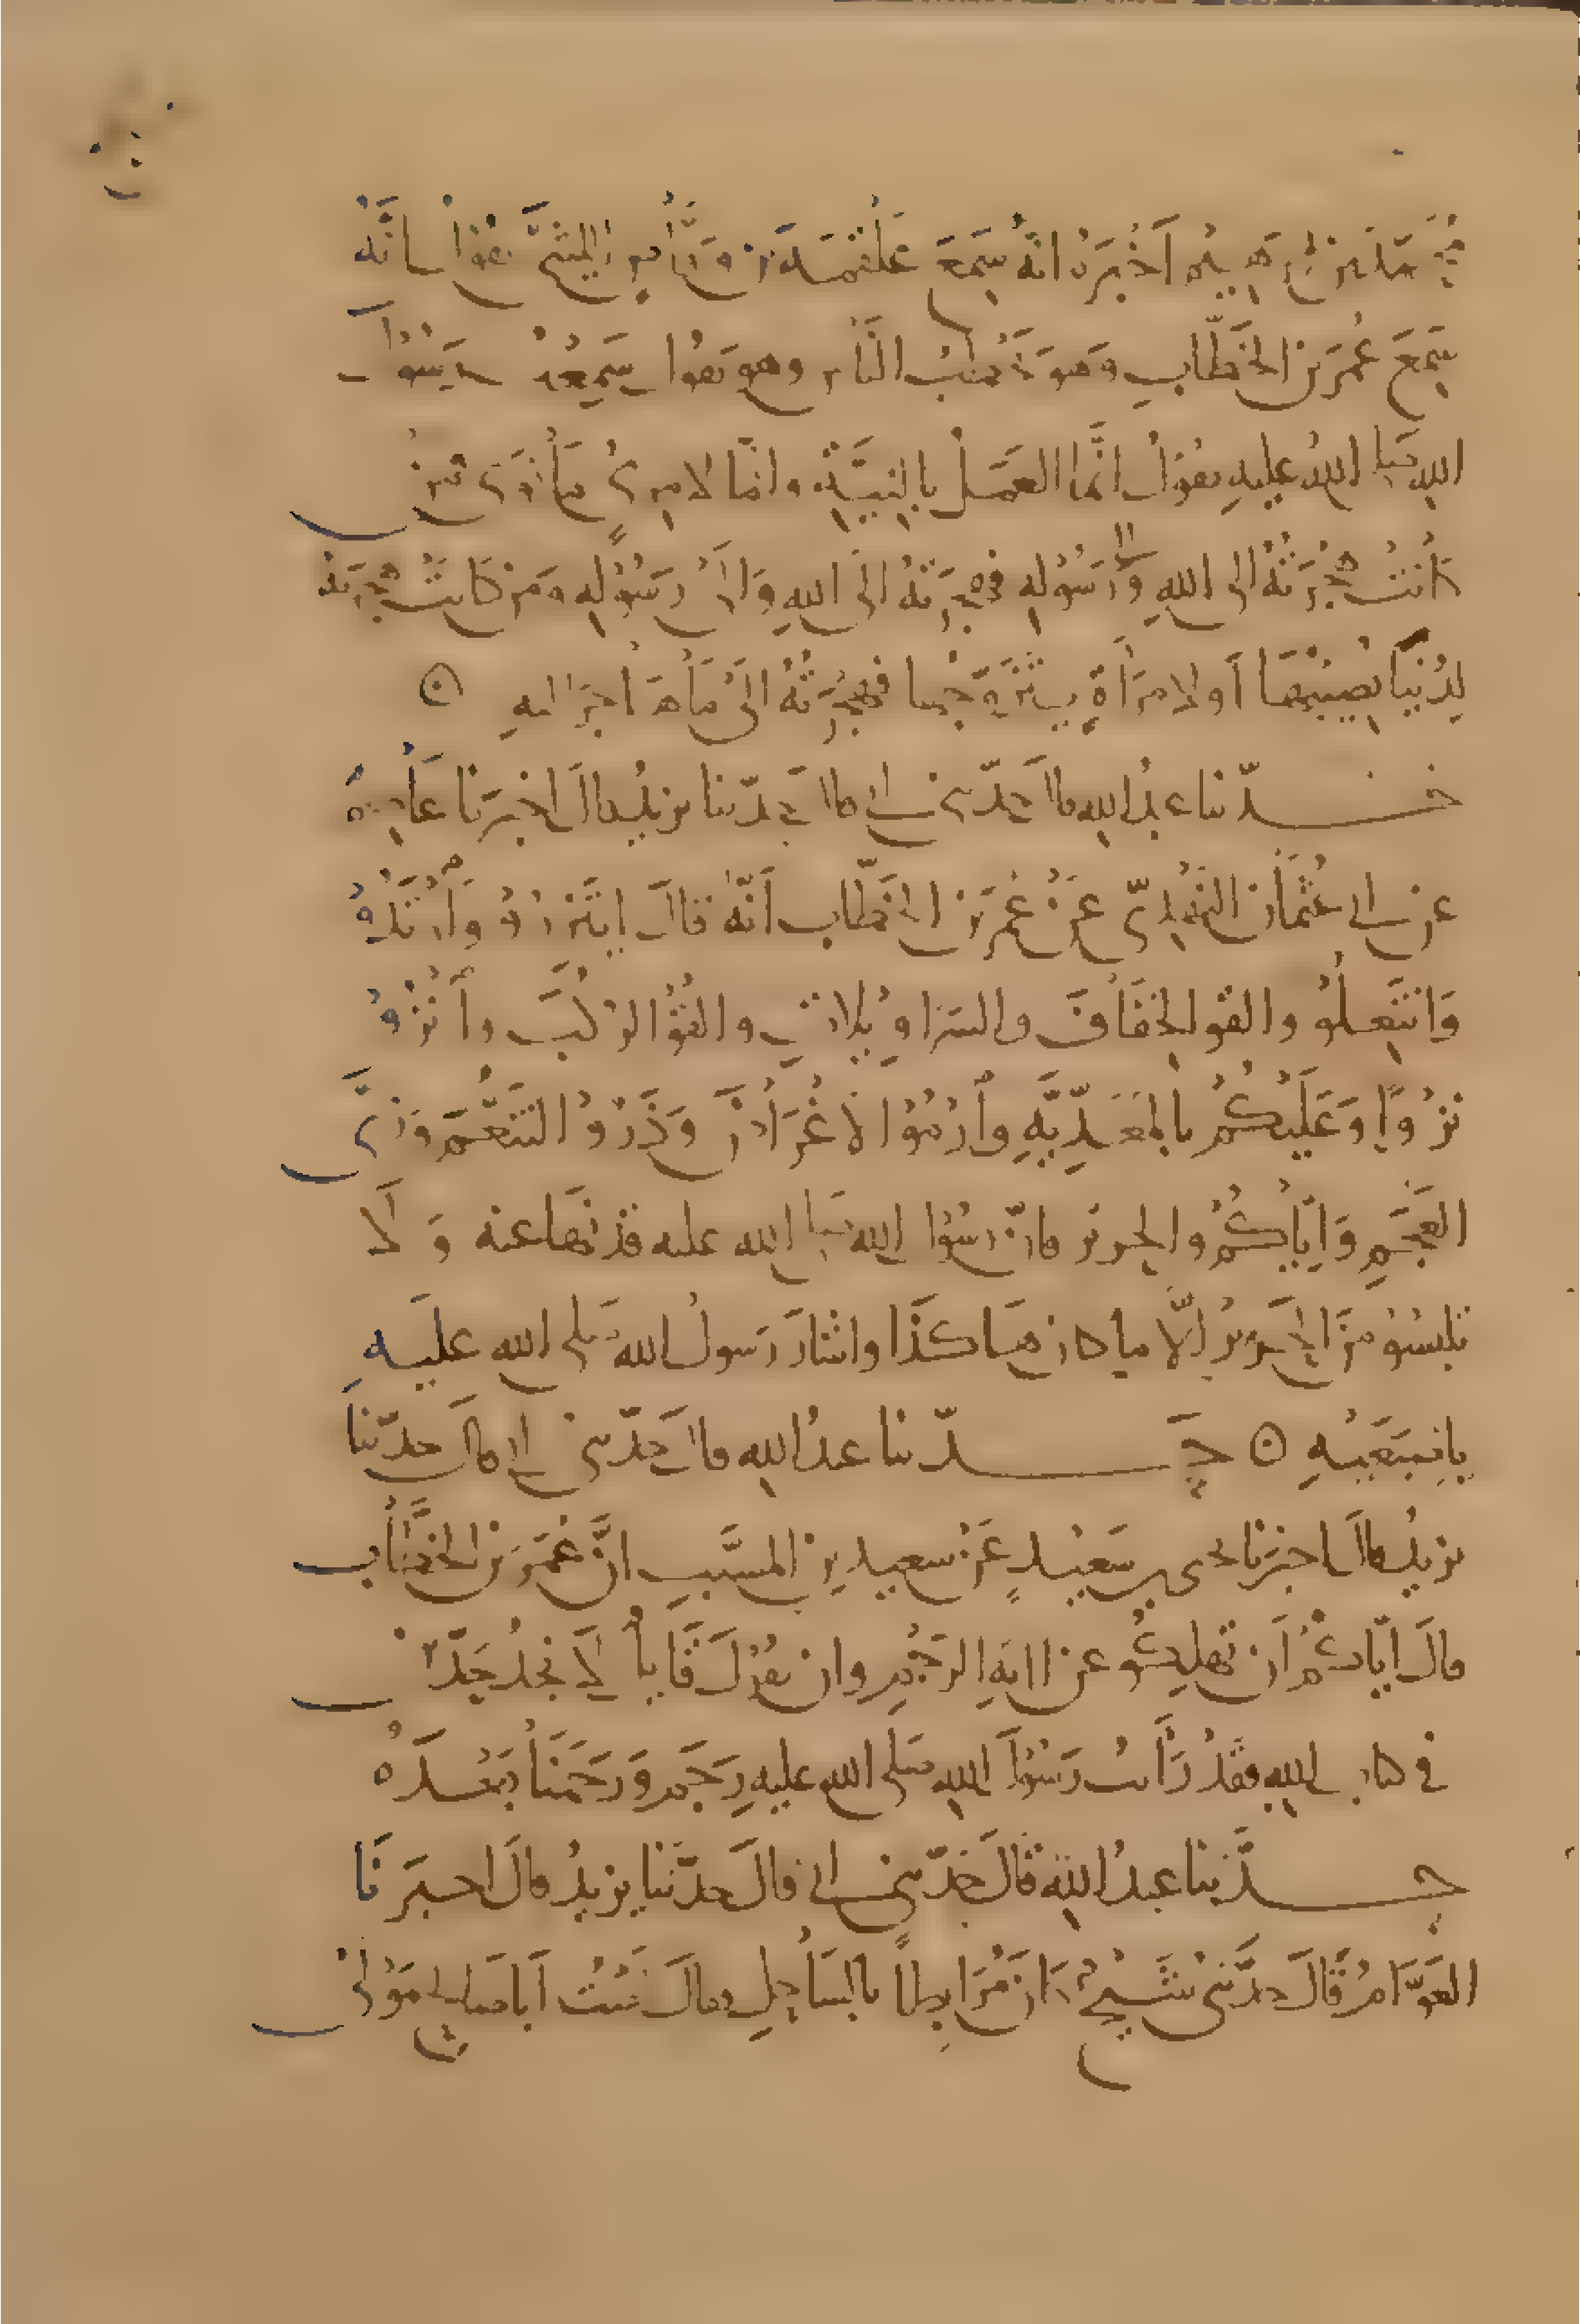 محمد بن ابرهيم اخبره انه سمع علقمة بن وقاص الليثي يقول انه
سمع عمر بن الخطاب وهو يخطب الناس وهو يقول سمعت رسول
الله صلى الله عليه يقول انما العمل بالنية وانما لامرئ ما نوى فمن
كانت هجرته الى الله والى رسوله فهجرته الى الله والى رسوله ومن كانت هجرته
لدنيا يصيبها او لامرأة يتزوجها فهجرته الى ما هاجر اليه ۞
حدثنا عبد الله قال حدثني ابي قال حدثنا يزيد قال اخبرنا عاصم
عن ابي عثمان النهدي عن عمر بن الخطاب انه قال اتزروا وارتدوا
وانتعلوا والقوا الخفاف والسراويلات والقوا الركب وانزوا
نزوا وعليكم بالمعدية وارموا الاغراض وذروا التنعم وزي
العجم واياكم والحرير فان رسول الله صلى الله عليه قد نها عنه ولا
تلبسوا من الحرير الا ما كان هاكذا واشار رسول الله صلى الله عليه
باصبعيه ۞ حدثنا عبد الله قال حدثني ابي قال حدثنا
يزيد قال اخبرنا يحيى بن سعيد عن سعيد بن المسيب ان عمر بن الخطاب
قال اياكم ان تهلكوا عن اية الرجم وان يقول قايل لا نجد حدين
في كتاب الله فقد رأيت رسول الله صلى الله عليه رجم ورجمنا بعده
حدثنا عبد الله قال حدثني ابي قال حدثنا يزيد قال اخبرنا
العوام قال حدثني شيخ كان مرابطا بالساحل قال لقيت ابا صالح مولى